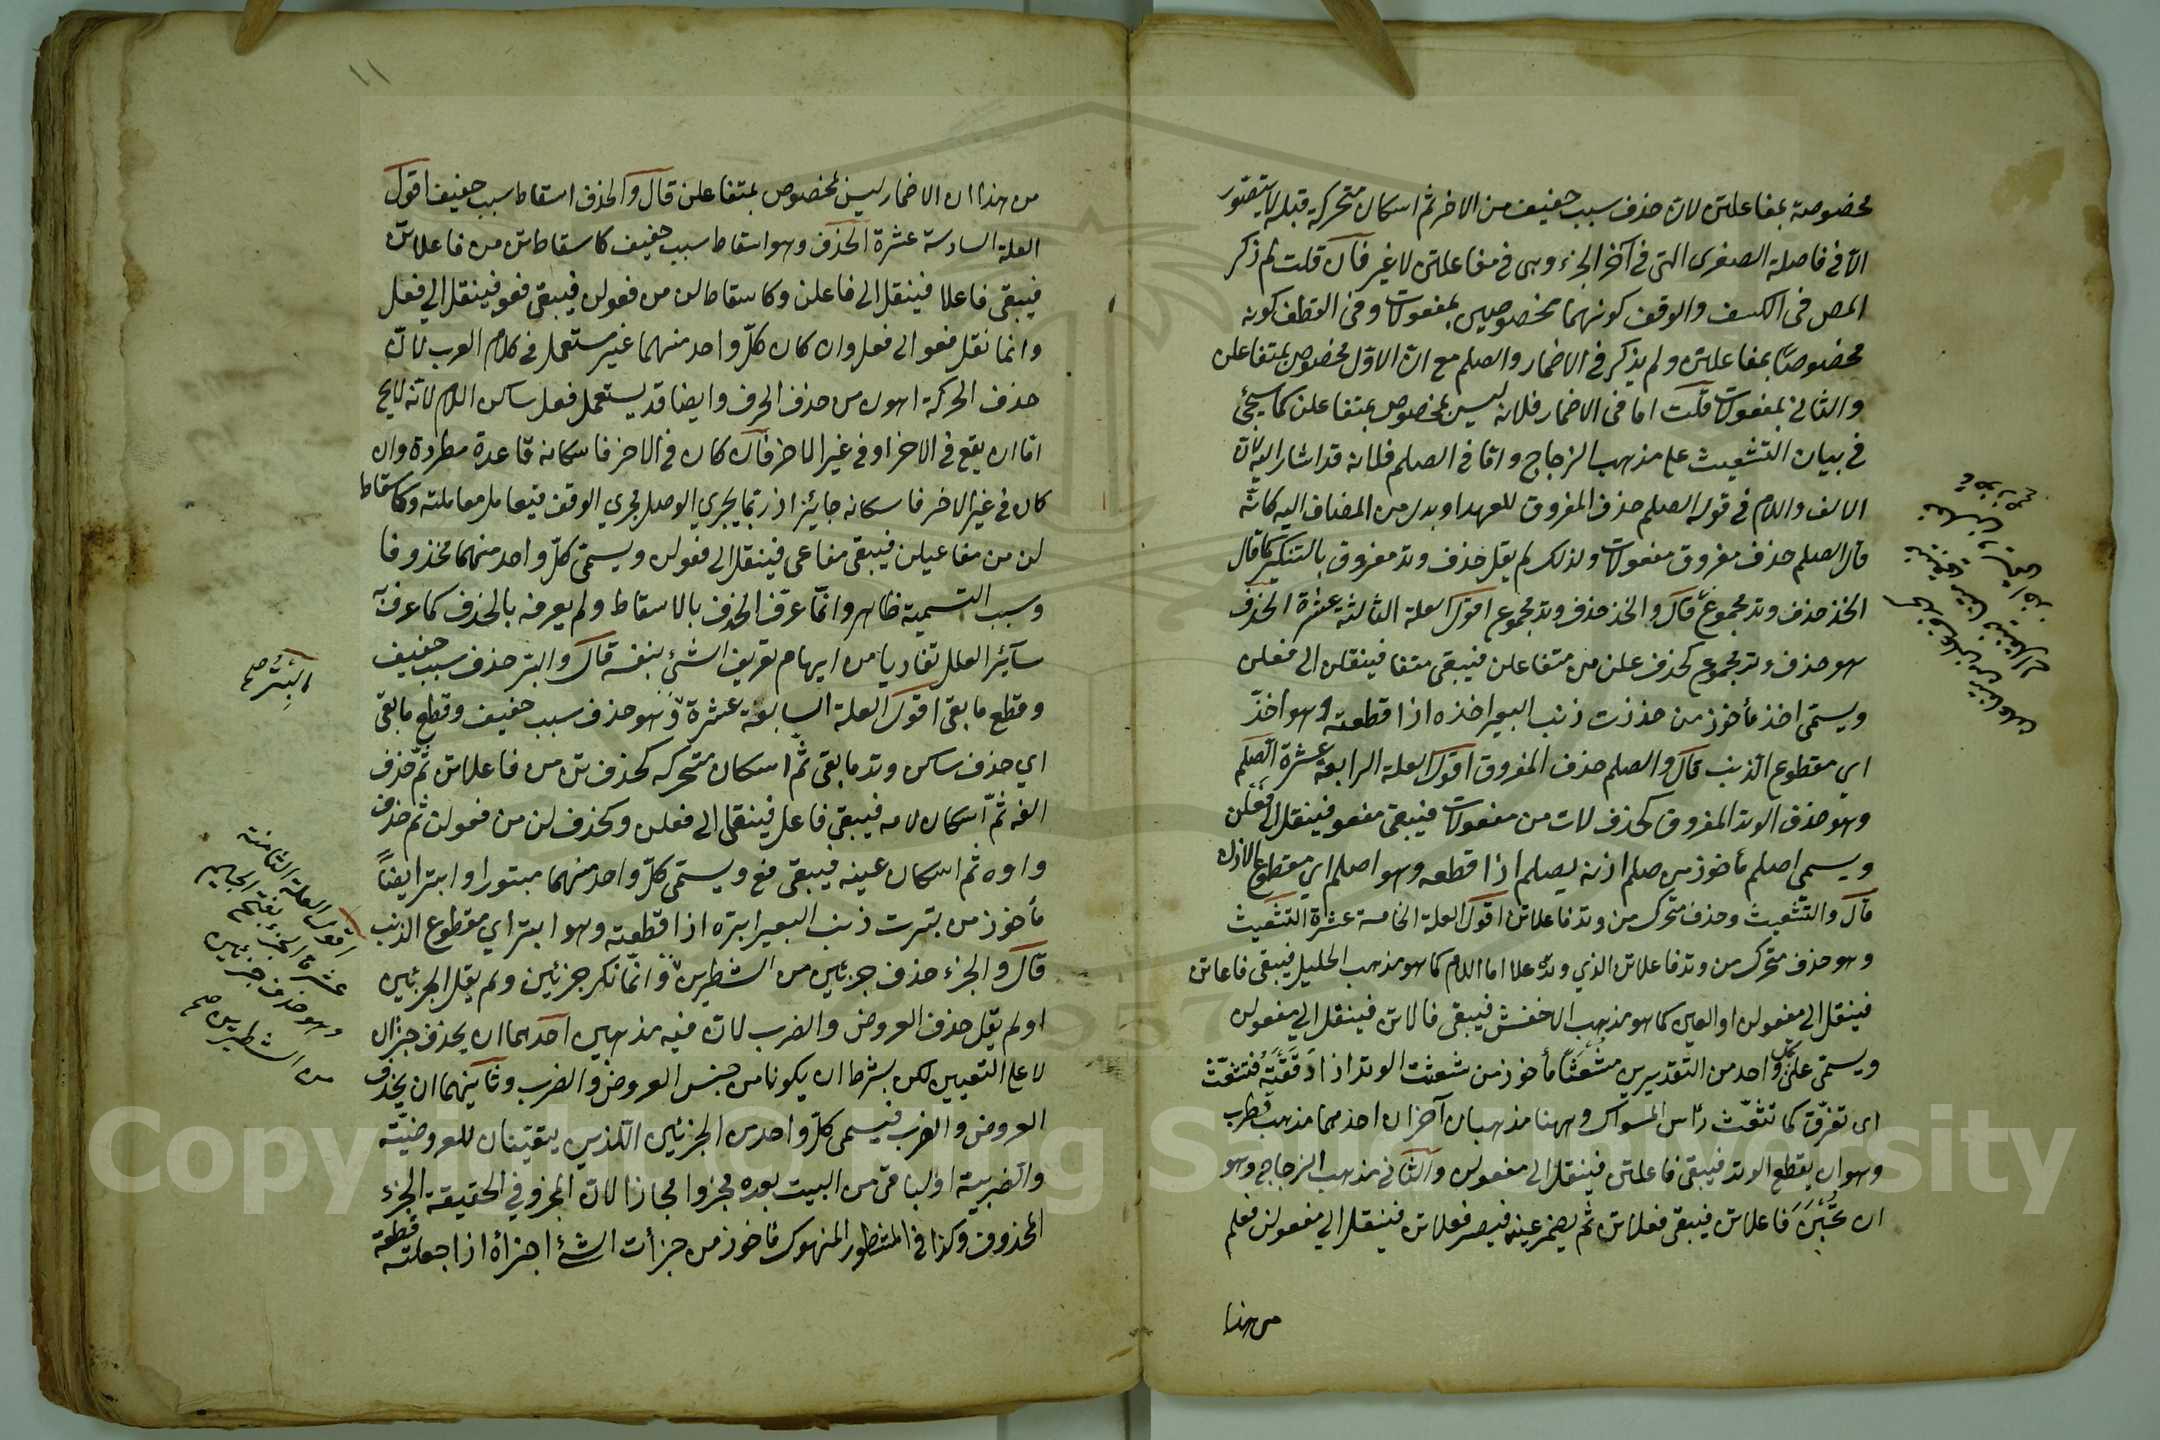 مخصوصة بمفاعلتن لان حذف سبب خفيف من الاخر ثم اسكان متحركه قبله لا يتصور
الا في فاصلة الصغرى التي في آخر الجزء وهي في مفاعلتن لا غير فان قلت لم ذكر
المص في الكسف والوقف كونهما مخصوصين بمفعولات وفي القطف كونه
مخصوصا بمفاعلتن ولم يذكر في الاضمار والصلم مع ان الاول مخصوص بمتفاعلن
والثاني بمفعولات قلت اما في الاضمار فلانه ليس بمخصوص بمتفاعلن كما سيجئ
في بيان التشعيث على مذهب الزجاج واما في الصلم فلانه قد اشار اليه لان
الالف واللام في قوله الصلم حذف المفروق للعهد او بدل من المضاف اليه كانه
قال الصلم حذف مفروق مفعولات ولذلك لم يقل حذف وتد مفروق بالتنكير كما قال
الحذذ حذف وتد مجموع قال والحذذ حذف وتد مجموع اقول العلة الثالثة عشرة الحذذ
هو حذف وتد مجموع كحذف علن من متفاعلن فيبقى متفا فينقل الى فعلن
ويسمى احذ مأخوذ من حذذت ذنب البعير احذه اذا قطعته وهو احذ
اي مقطوع الذنب قال والصلم حذف المفروق اقول العلة الرابعة عشرة الصلم
وهو حذف الوتد المفروق كحذف لات من مفعولات فيبقى مفعو فينقل الى فعلن
ويسمى اصلم مأخوذ من صلم اذنه يصلم اذا قطعه وهو اصلم اي مقطوع الاذن
قال والتشعيث وحذف متحرك من وتد فاعلاتن اقول العلة الخامسة عشرة التشعيث
وهو حذف متحرك من وتد فاعلاتن الذي وتده علا اما اللام كما هو مذهب الخليل فيبقى فاعاتن
فينقل الى مفعولن او العين كما هو مذهب الاخفش فيبقى فالاتن فينقل الي مفعولن
ويسمى على كل واحد من التقديرين مشعثا مأخوذ من شعثت الوتد اذا دققته فتشعث
اي تفرق كما تشعث رأس المسواك وههنا مذهبان آخران احدهما مذهب قطرب
وهو ان يقطع الوتد فيبقى فاعلتن فينقل الى مفعولن والثاني مذهب الزجاج وهو
ان يخبن فاعلاتن فيبقى فعلاتن ثم يضمر عينه فيصر فعلاتن فينقل الي مفعولن فعلم
من هذا
١١
من هذا ان الاضمار ليس بمخصوص بمتفاعلن قال والحذف اسقاط سبب خفيف اقول
العلة السادسة عشرة الحذف وهو اسقاط سبب خفيف كاسقاط تن من فاعلاتن
فيبقى فاعلا فينقل الى فاعلن وكاسقاط لن من فعولن فيبقى فعو فينقل الي فعل
وانما نقل فعو الى فعل وان كان كل واحد منهما غير مستعمل في كلام العرب لان
حذف الحركة اهون من حذف الحرف وايضا قد يستعمل فعل ساكن اللام لانه لا يخ
اما ان يقع في الاخر او في غير الاخر فان كان في الاخر فاسكانه قاعدة مطردة وان
كان في غير الاخر فاسكانه جايز اذ ربما يجري الوصل مجري الوقف فيعامل معاملته وكاسقاط
لن من مفاعيلن فيبقى مفاعي فينقل الى فعولن ويسمى كل واحد منهما محذوفا
وسبب التسمية ظاهر وانما عرف الحذف بالاسقاط ولم يعرفه بالحذف كما عرف
سائر العلل تفاديا من ايهام تعريف الشئ بنفسه قال والبتر حذف سبب خفيف
وقطع ما بقى اقول العلة السابعة عشرة وهو حذف سبب خفيف وقطع ما بقى
اي حذف ساكن وتد ما بقى ثم اسكان متحركه كحذف تن من فاعلاتن ثم حذف
الفه ثم اسكان لامه فيبقى فاعل فينقل الى فعلن وكحذف لن من فعولن ثم حذف
واوه ثم اسكان عينه فيبقى فع ويسمى كل واحد منهما مبتورا وابتر ايضا
مأخوذ من بترت ذنب البعير ابتره اذا قطعته وهو ابتر اي مقطوع الذنب
قال والجزء حذف جزئين من الشطرين وانما نكر جزئين ولم يقل الجزئين
او لم يقل حذف العروض والضرب لان فيه مذهبين احدهما ان يحذف جزان
لا على التعيين لكن بشرط ان يكونا من جنس العروض والضرب وثانيهما ان يحذف
العروض والضرب فيسمى كل واحد من الجزئين اللذين يبقيان للعروضية
والضربية او لباقى من البيت بعده مجزوا مجازا لان المجزو في الحقيقة الجزء
المحذوف وكذا في المشطور المنهوك مأخوذ من جزأت الشئ اجزأه اذا جعلته قطعة
البتر صح
اقول العلة الثامنة
عشرة الجزء بفتح الجيم
وهو حذف جزئين
من الشطرين صح
Copyright © King Saud University
1957